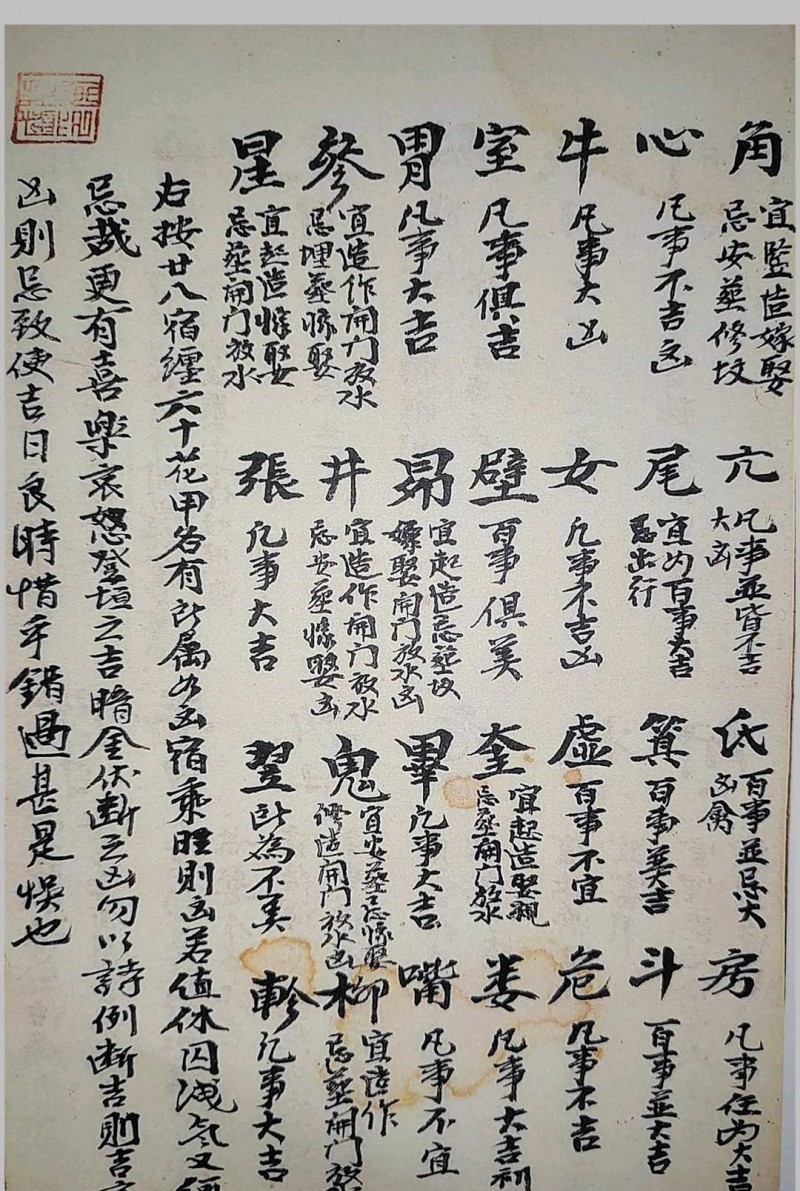 角 宜監造嫁娶忌安葬修坟 亢 凡事並皆不吉大凶 氐 百事並忌大凶禽 房 凡事任为大吉
心 凡事不吉凶 尾 宜为百事大吉忌出行 箕 百事美大吉 斗 百事並大吉
牛 凡事大凶 女 凡事不吉凶 虛 百事不宜 危 凡事不吉
室 凡事俱吉 壁 百事俱美 奎 宜起造娶親忌葬開门放水 娄 凡事大吉利
胃 凡事大吉 昴 宜起造忌葬坟嫁娶開门放水凶 畢 凡事大吉 嘴 凡事不宜
參 宜造作開门放水忌埋葬嫁娶 井 宜造作開门放水忌安葬嫁娶凶 鬼 宜安葬忌嫁娶修造開门放水凶 柳 宜造作忌葬開门放
星 宜起造嫁娶忌葬開门放水 張 凡事大吉 翌 所為不美 軫 凡事大吉
右按廿八宿纏六十花甲各有所属如凶宿乘旺則凶若值休囚减气又
忌哉更有喜樂哀怒登垣之吉暗金伏断之凶勿以詩例断吉則吉
凶則忌致使吉日良時惜乎錯過甚是悞也